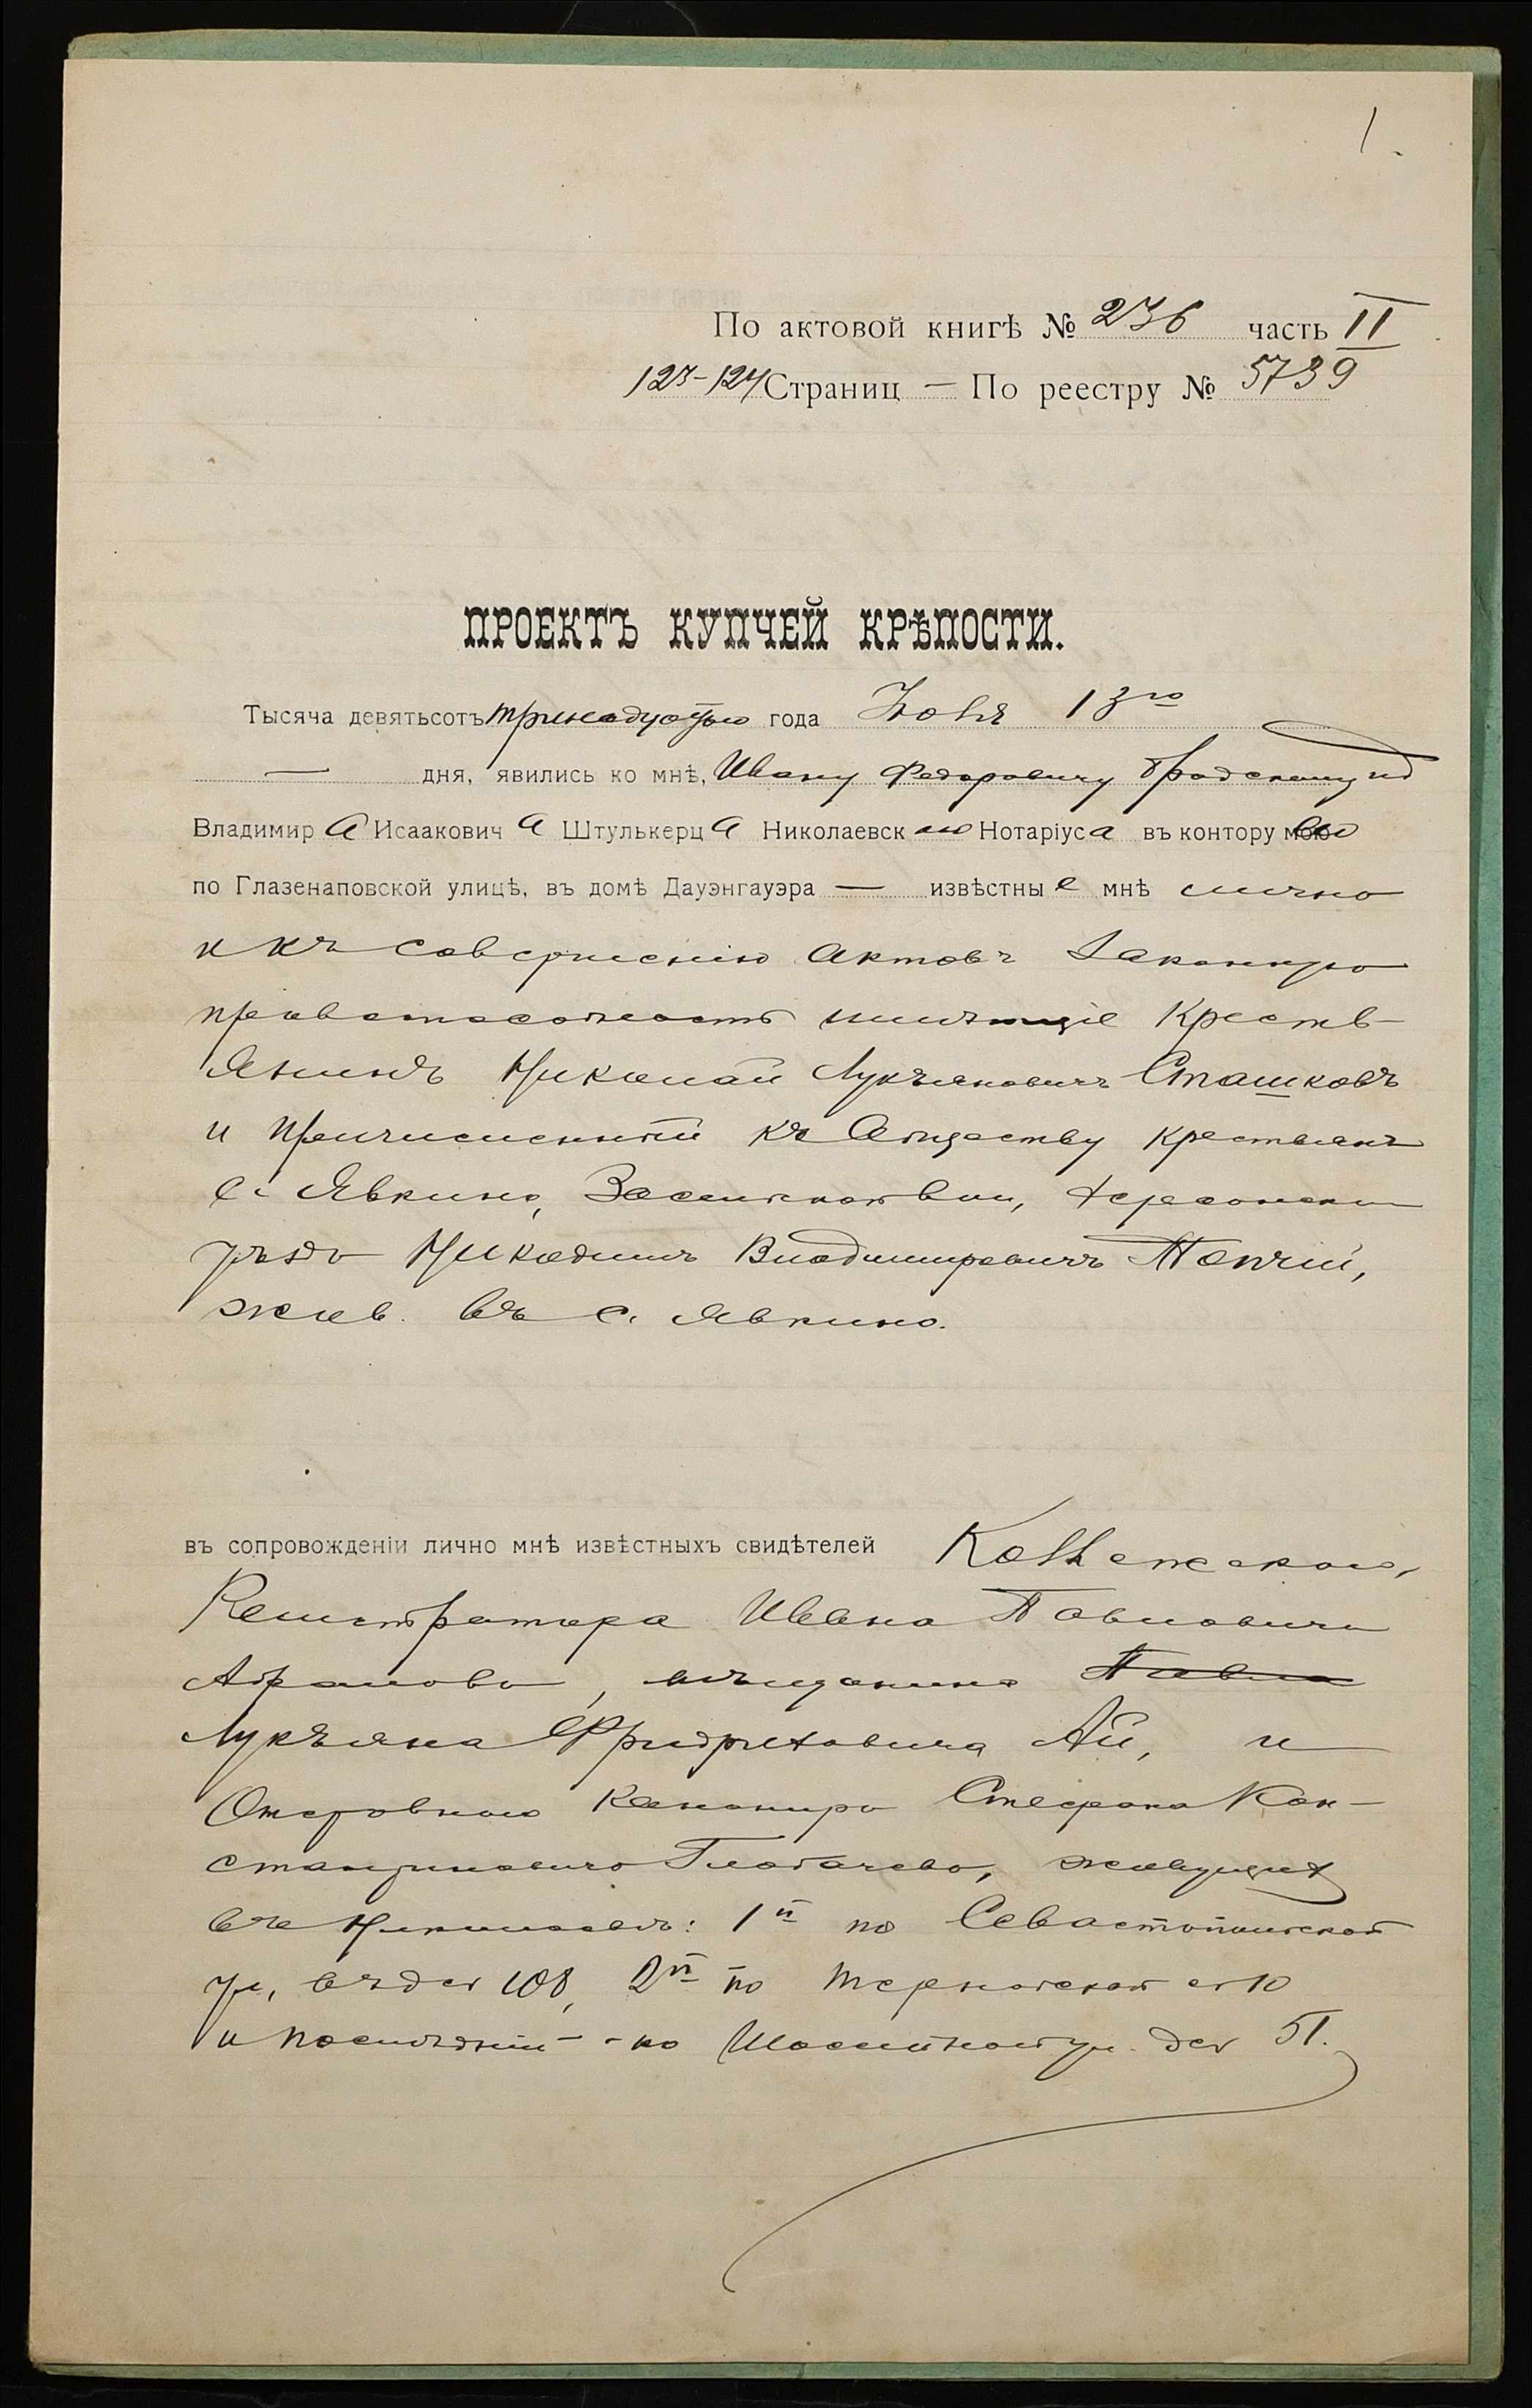 1.
По актовой книгѣ № 236 часть II
123-124 Страниц — По реестру № 5739
ПРОЕКТЪ КУПЧЕЙ КРѢПОСТИ.
Тысяча девятьсотъ тринадцатаго года 13го
— дня, явились ко мнѣ, Ивану Федоровичу
Владимира Исааковича Штулькерца Николаевскаго Нотаріуса въ контору его
по Глазенаповской улицѣ, въ домѣ Дауэнгауэра — извѣстные мнѣ лично
и къ совершенію актовъ законную
правоспособность имѣющіе Кресть-
янинъ Николай Лукьяновичъ Сташковъ
и причисленный къ Обществу крестьянъ
с. Явкино, вол., Херсонск
уѣзда Никодимъ Владимировичъ Топчій,
жив. въ с. Явкино.
въ сопровожденіи лично мнѣ извѣстныхъ свидѣтелей Коллежскаго
Регистратора Ивана Павловича
Абрамова, мѣщанина Павла
Лукьяна Фридриховича Ай, и
Стефана Кон-
стантиновича Глобачева, живущихъ
въ Николаевѣ: 1й по Севастопольской
ул, въ д № 108, 2й по Терновской № 10
и послѣдній — по ул. д № 51.